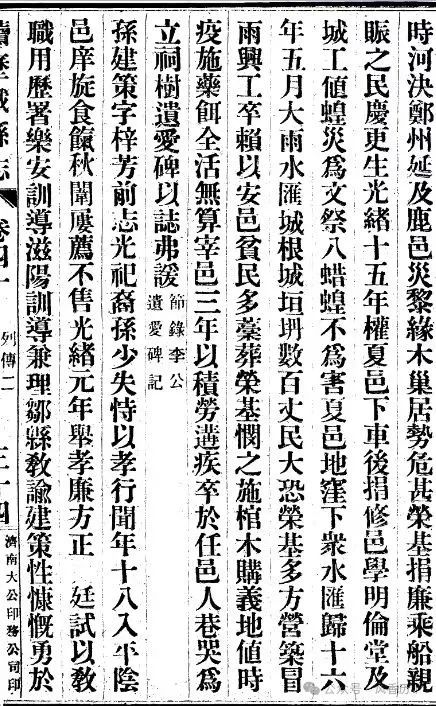 時河決鄭州延及鹿邑災黎緣木巢居勢危甚榮基捐廉乘船親
賑之民慶更生光緒十五年權夏邑下車後捐修邑學明倫堂及
城工値蝗災爲文祭八蜡蝗不爲害夏邑地窪下衆水匯歸十六
年五月大雨水匯城根城垣坍數百丈民大恐榮基多方營築冒
雨興工卒賴以安邑貧民多藁葬榮基憫之施棺木購義地値時
疫施藥餌全活無算宰邑三年以積勞遘疾卒於任邑人巷哭爲
立祠樹遺愛碑以誌弗諼
節錄李公
遺愛碑記
孫建策字梓芳前志光祀裔孫少失恃以孝行聞年十八入平陰
邑庠旋食餼秋闈屢薦不售光緒元年舉孝廉方正 廷試以教
職用歷署樂安訓導滋陽訓導兼理鄒縣教諭建策性慷慨勇於
續歷城縣志 卷四十 列傳二 三十四 濟南大公印務公司印
公众号